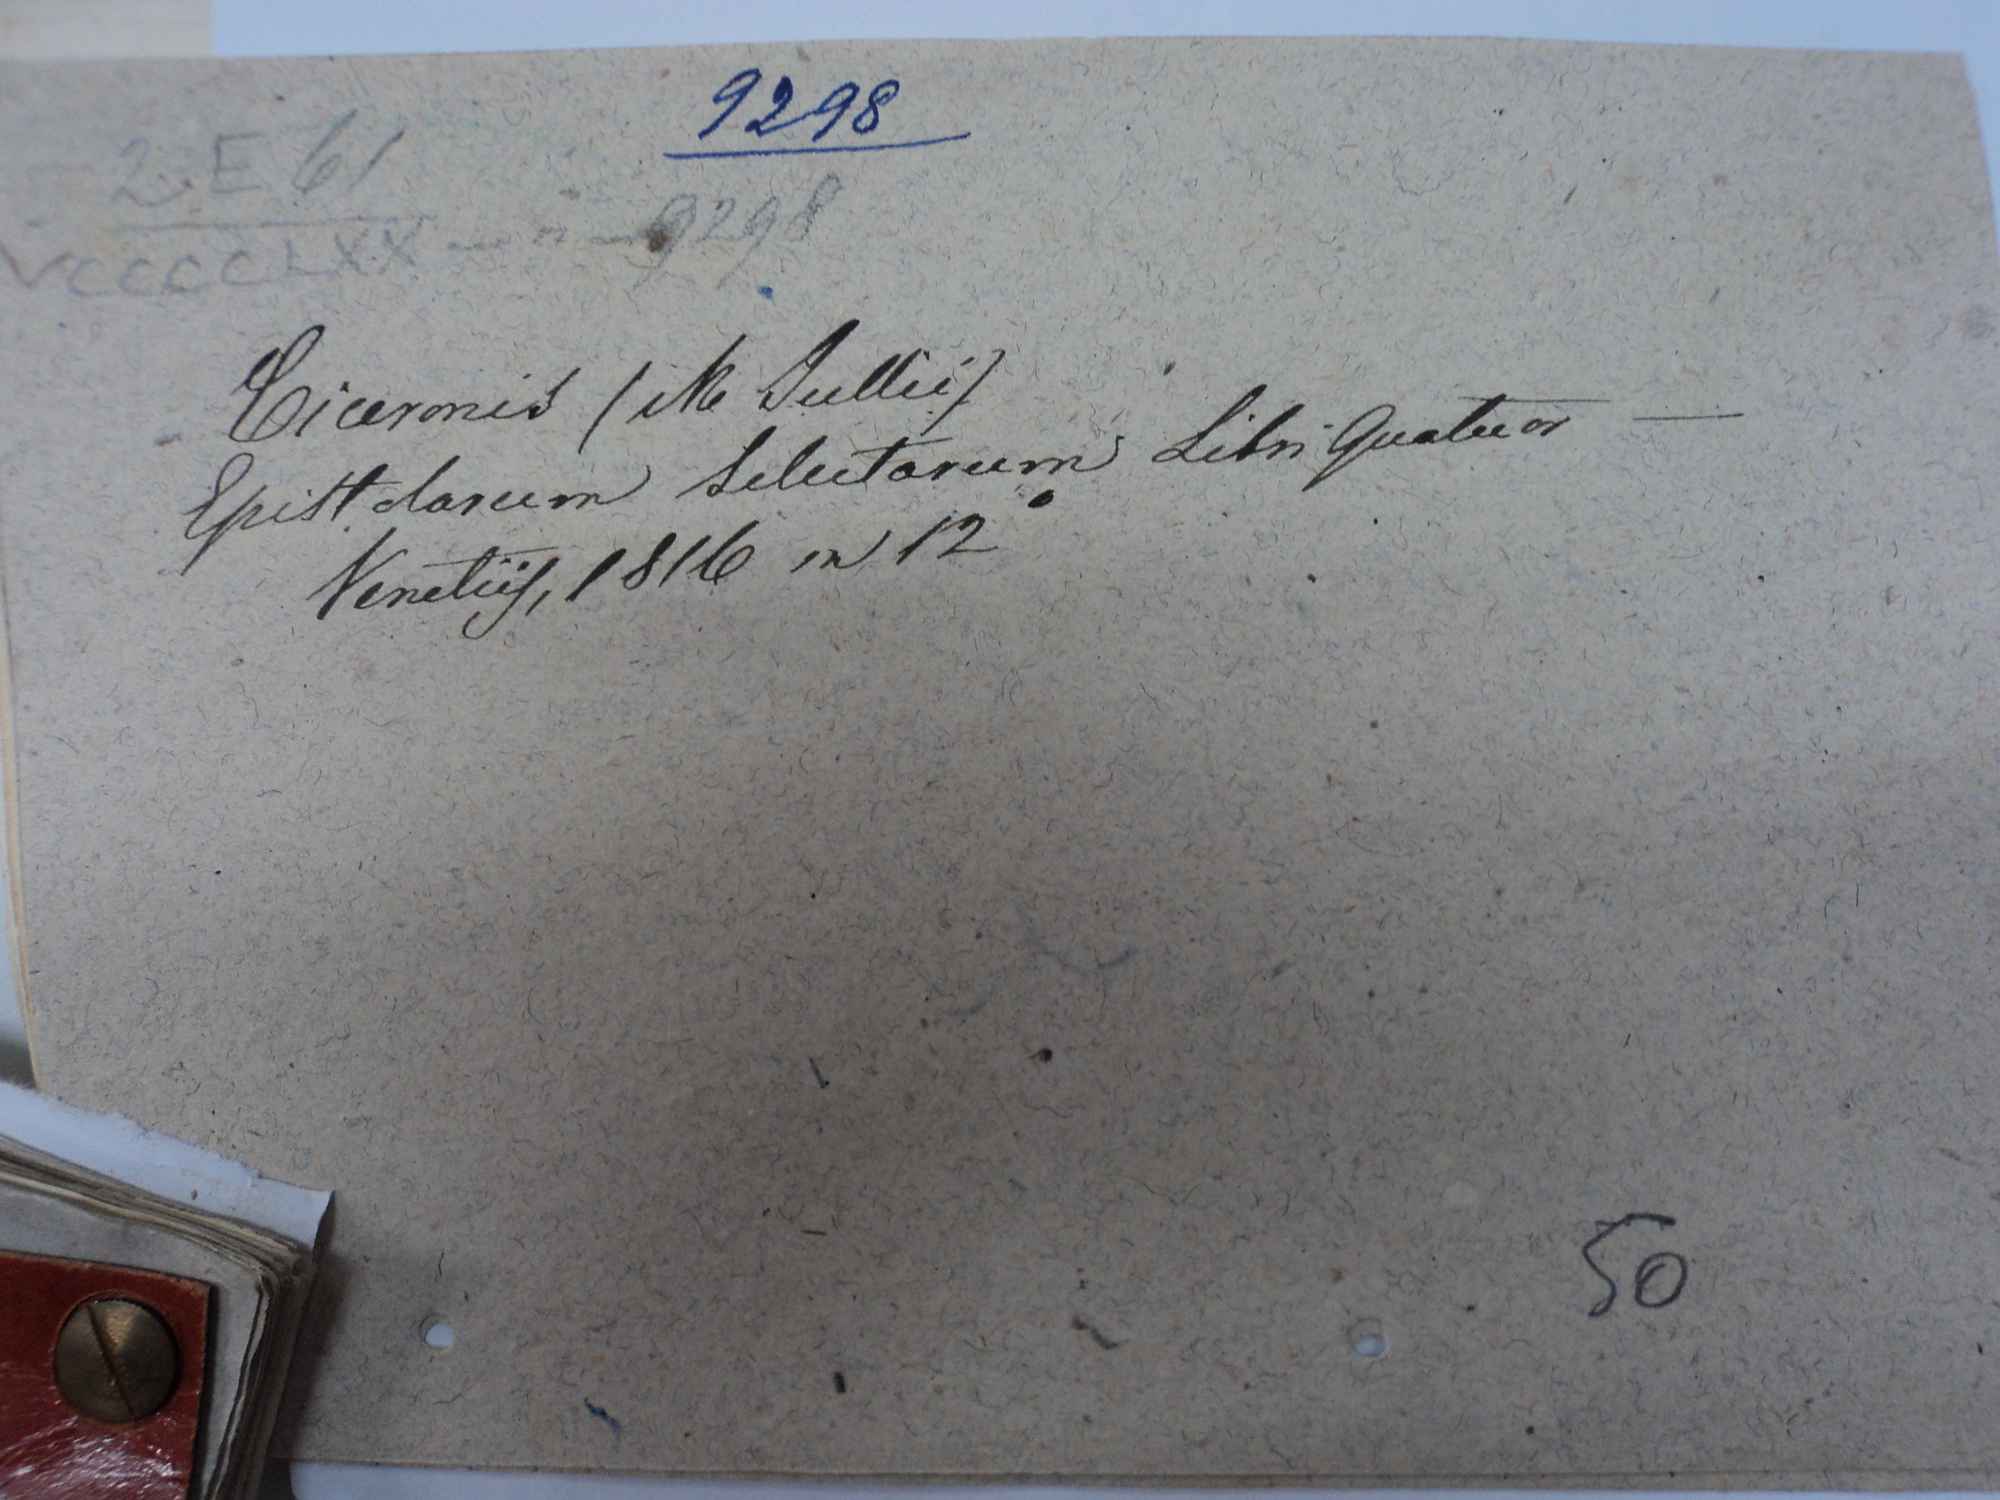 9298
2 E 61
VCCCCLXX — n — 9298
Ciceronis (M Tullii)
Epistolarum Selectarum Libri Quatuor —
Venetiis, 1816 in 12°
50